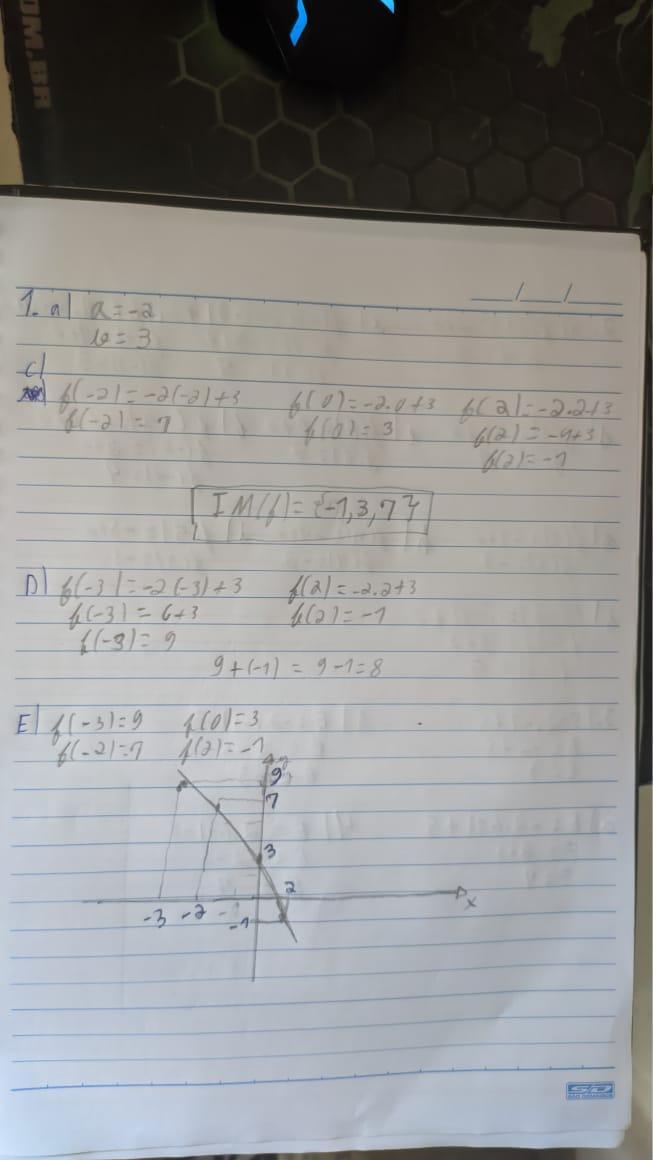 OM.BR
__/__/__
1. a) a = -2
b = 3
c)
f(-2) = -2(-2)+3 f(0) = -2.0+3 f(2) = -2.2+3
f(-2) = 7 f(0) = 3 f(2) = -4+3
f(2) = -1
IM(f) = {-1,3,7}
D) f(-3) = -2(-3)+3 f(2) = -2.2+3
f(-3) = 6+3 f(2) = -1
f(-3) = 9
9+(-1) = 9-1=8
E) f(-3)=9 f(0)=3
f(-2)=7 f(2)=-1
y
9
7
3
2
x
-3 -2 -1
-1